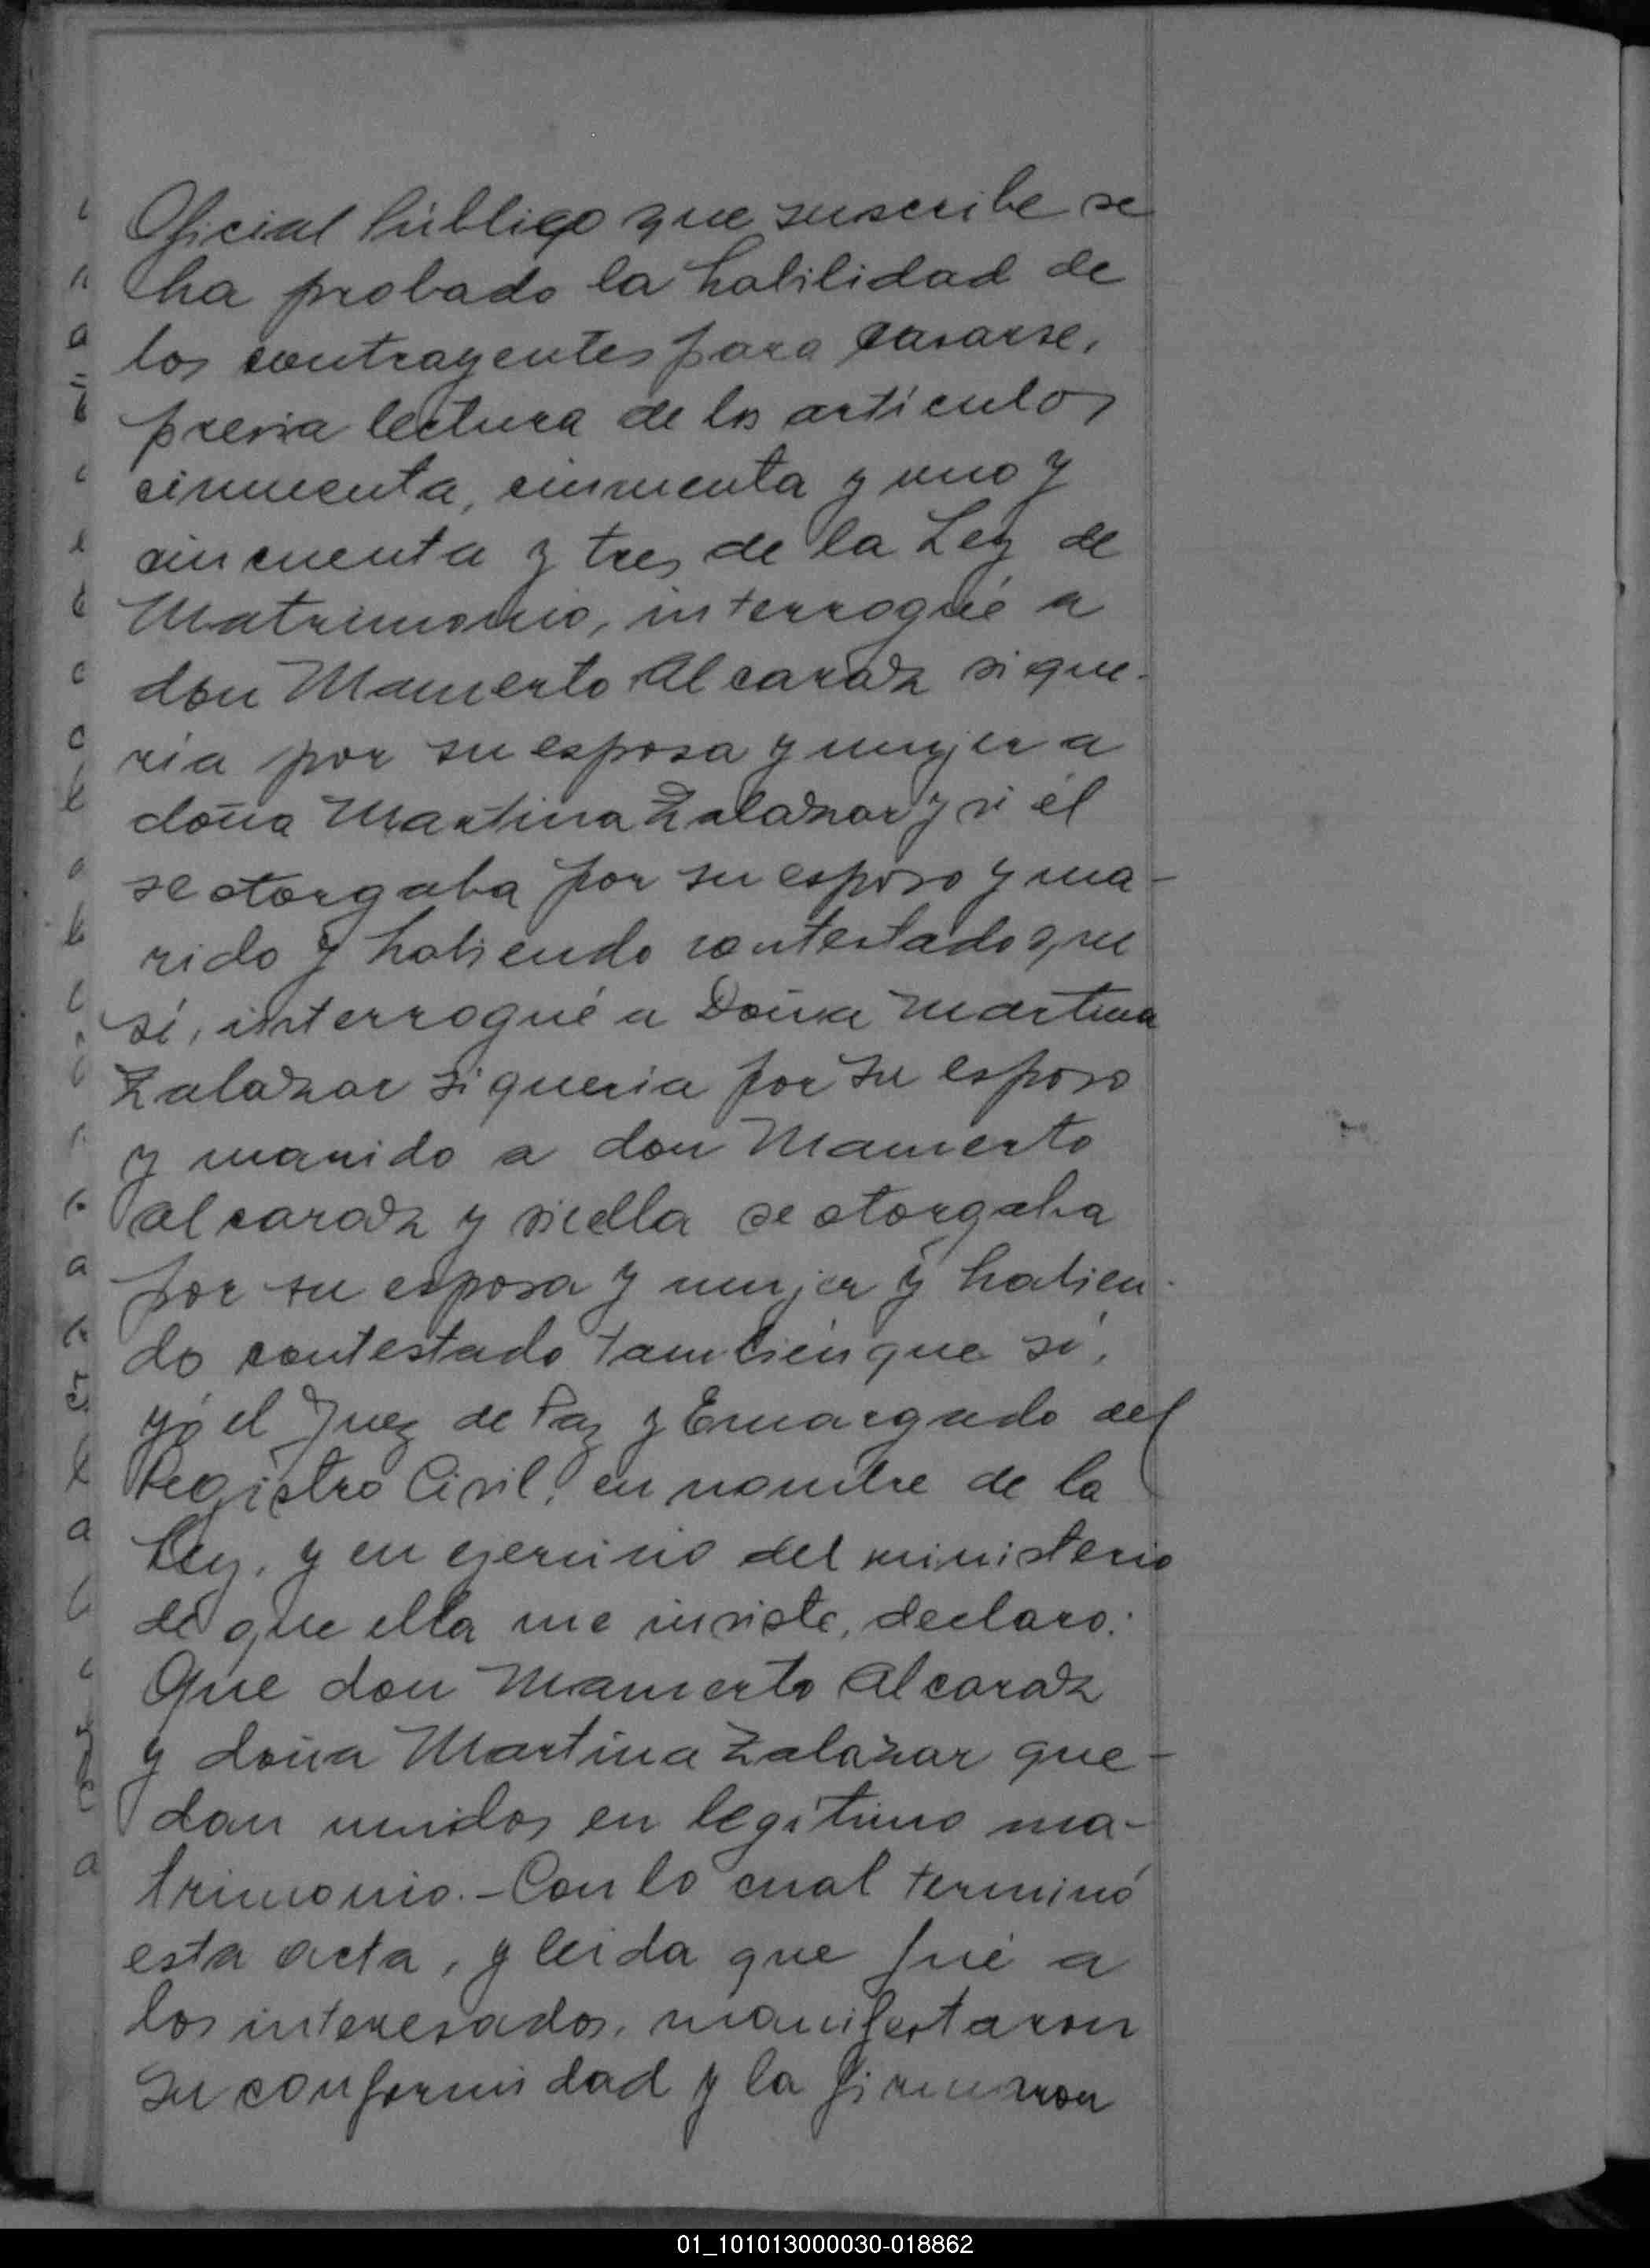 Oficial Público que suscribe se
ha probado la habilidad de
los contrayentes para casarse,
previa lectura de los artículos
cincuenta, cincuenta y uno y
cincuenta y tres de la Ley de
Matrimonio, interrogué a
don Mamerto Alcaráz si que-
ria por su esposa y mujer a
doña Martina Zalazar y si él
se otorgaba por su esposo y ma-
rido y habiendo contestado que
sí, interrogué a Doña Martina
Zalazar si queria por su esposo
y marido a don Mamerto
Alcaraz y si ella se otorgaba
por su esposa y mujer y habien-
do contestado también que sí,
yó el Juez de Paz y Encargado del
Registro Civil, en nombre de la
Ley, y en ejercicio del ministerio
de que ella me inviste, declaro:
Que don Mamerto Alcaraz
y doña Martina Zalazar que-
dan unidos en legítimo ma-
trimonio.- Con lo cual terminó
esta acta, y leida que fué a
los interesados, manifestaron
su conformidad y la firmaron
01_101013000030-018862